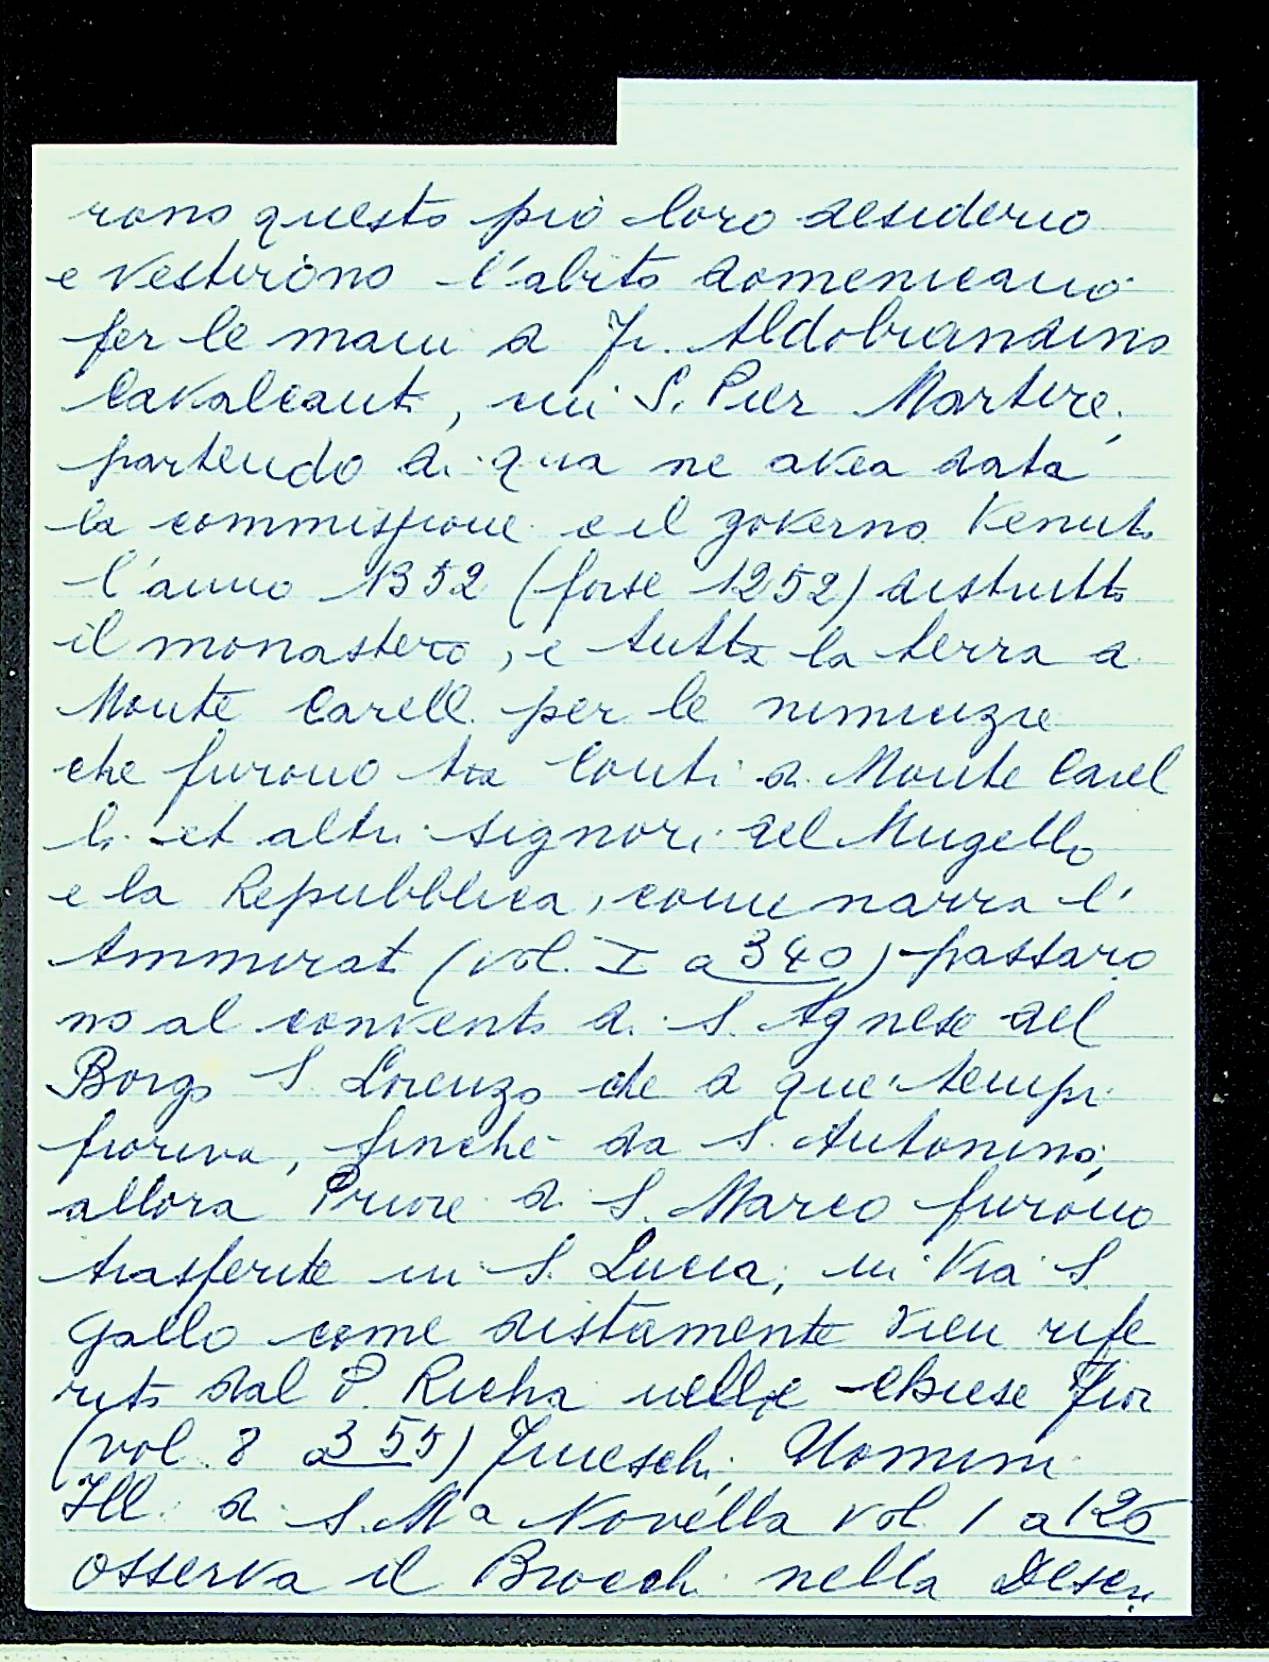 rono questo pio loro desiderio
e vestirono l'abito domenicano
per le mani di Fr. Aldobrandino
Cavalcanti, cui S. Pier Martire,
partendo di qua ne avea data
la commissione e il governo. Venuto
l'anno 1352 (forse 1252) distrutto
il monastero, e tutta la terra di
Monte Carelli per le nimicizie
che furono tra Conti di Monte Carel
li et altri signori del Mugello
e la Repubblica, come narra l'
Ammirat (vol. I a 340) passaro
no al convento di S. Agnese del
Borgo S. Lorenzo che a que' tempi
fioriva, finché da S. Antonino,
allora Priore di S. Marco furono
trasferite in S. Lucia, in Via S.
Gallo come distamente vien rife
rito dal P. Richa nelle Chiese Fior
(vol. 8 a 355) Fineschi, Uomini
Ill. di S. Mª Novella vol 1 a 126
osserva il Brocchi nella Descri